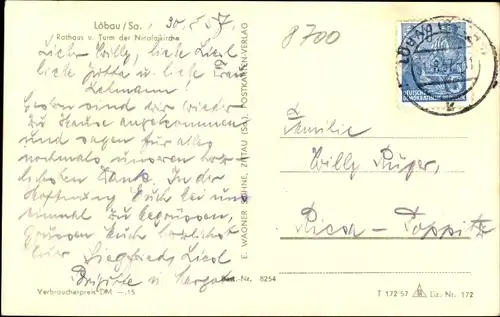 Löbau/Sa.
Rathaus u. Turm der Nicolaikirche
30.
8700
Lieber Willy, liebe Liesl
liebe Jutta u. liebe Frau
Lehmann!
Gestern sind wir wieder
zu Hause angekommen
und sagen für alles
nochmals unseren herz-
lichsten Dank. In der
Hoffnung Euch bei uns
einmal zu begrüssen,
grüssen Euch herzlichst
Eure Siegfried, Liesl
Brigitte u.
Best.-Nr. 8254
Verbraucherpreis DM —.15
E. WAGNER SÖHNE, ZITTAU (SA.) POSTKARTEN-VERLAG
DEUTSCHE
DEMOKRATISCHE REPUBLIK
Familie
Willy Püger,
Riesa-Poppitz
T 172 57
Liz. Nr. 172